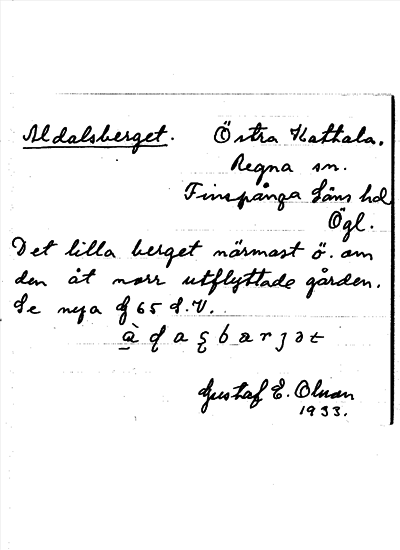 Aldalsberget. Östra Kattala.
Regna sn.
Finspånga läns hd
Ögl.
Det lilla berget närmast ö. om
den åt norr utflyttade gården.
Se nya g 65 S.V.
Gustaf E. Olson
1933.